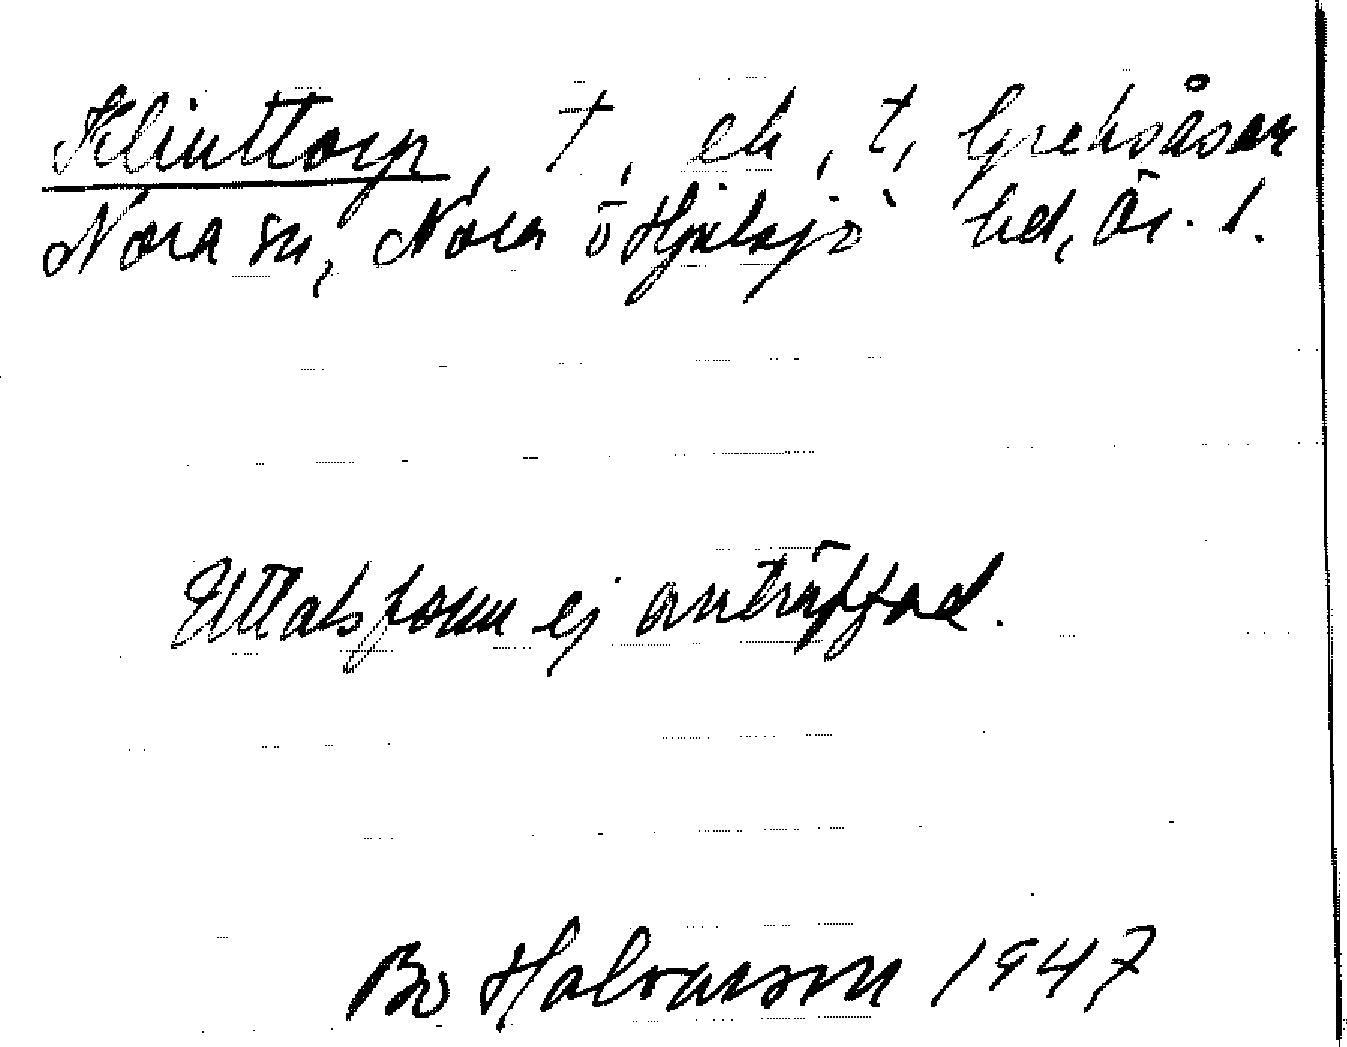 Klinttorp, t, ek, t, Greksåsar
Nora sn, Nora o Hjulsjö hd, Ör. l.
Uttalsform ej anträffad.
Bo Halvarson 1947